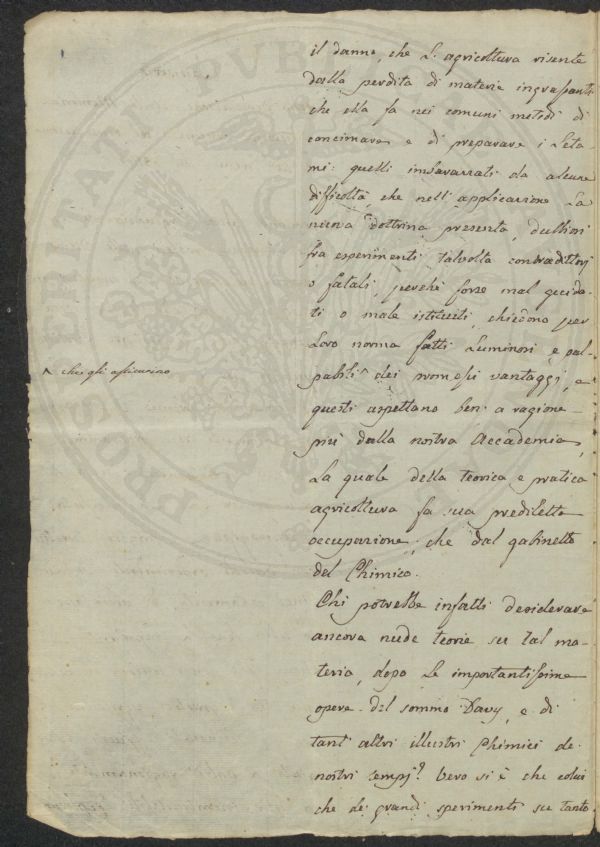 il danno, che l'agricoltura risente
dalla perdita di materie ingrassanti
che ella fa nei comuni metodi di
concimare e di preparare i leta-
mi: quelli imbarazzati da alcune
difficoltà, che nell'applicazione la
nuova dottrina presenta, dubbiosi
fra esperimenti talvolta contradittorj
o fatali, perché forse mal
ti o male istituiti, chiedono per
loro norma fatti luminosi, e pal-
^ che gli assicurino
pabili ^ dei promessi vantaggi, e
questi aspettano ben a ragione
più dalla nostra Accademia,
la quale della teorica e pratica
agricoltura fa sua prediletta
occupazione, che dal gabinetto
del Chimico.
Chi potrebbe infatti desiderare
ancora nude teorie su tal ma-
teria, dopo le importantissime
opere del sommo Davy, e di
tant'altri illustri Chimici de
nostri tempj? Vero si è che colui
che de' grandi sperimenti su tanto